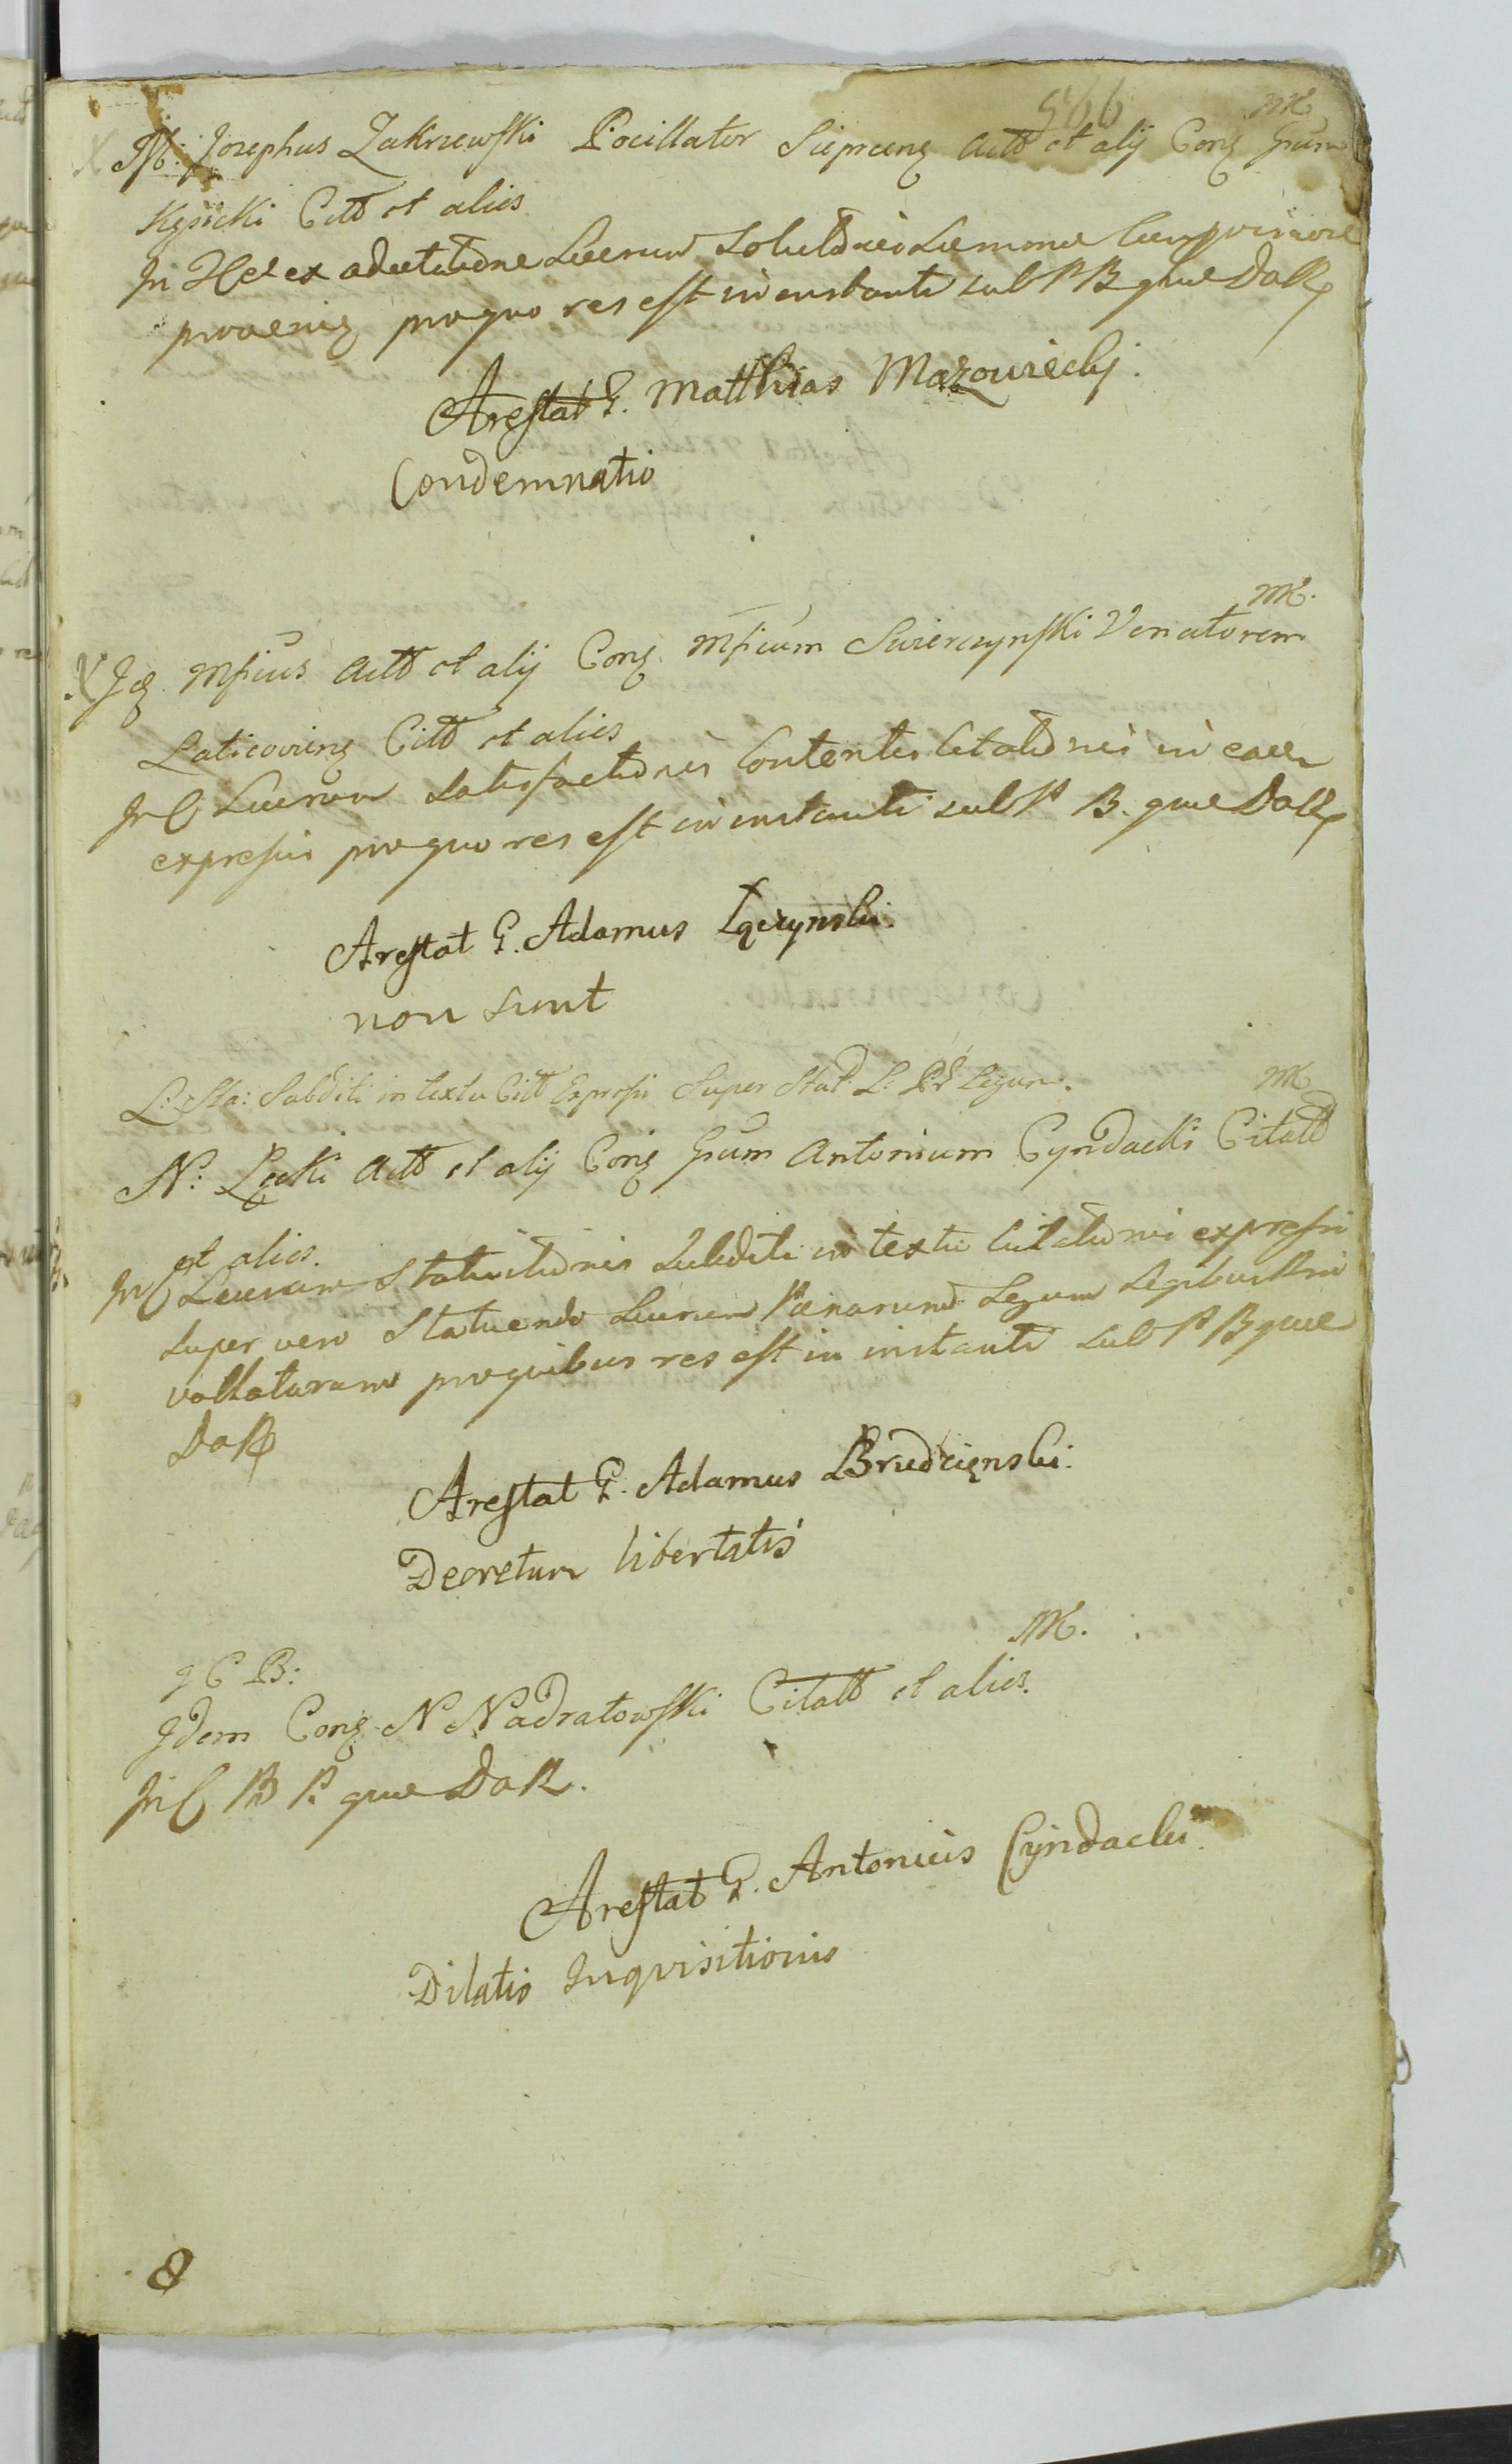 566
MK
X M: Josephus Zakrzewski Pocillator Sieprceng Actt et alij Cong Gsum
Kęsicki Citt et alios
In Hct ex aductatione Luerum Solutnis Summae Cuprivione
proaenig proquo res est in instanti sub P B que DaR
Arestat G. Matthias Mazowiecki.
Condemnatio
MK.
X Id. Mficus Actt et alij Cong. Mficum Swierczynski Venatorem
Laticoving Citt et alios
In C Luerum Satisfactnis Contentis Citatnis in eaer
expressis proquo res est in instanti sub P B. que DaR
Arestat G. Adamus Łączynski.
non sunt
L: Sta: Subditi in textu Citt Expressi Super Stat: L: Legum.
MK
N: Lęcki Actt et alij Cong Gsum Antonium Cyndacki Citatt
et alios.
In C Luerum Statuitionis Subditi in textu Citationis expressi
super vero Statuendo Luerum Paenarum Legum Legibus Rni
vallatarum proquibus res est in instanti sub P B que
DaR
Arestat G. Adamus Brudzięnski.
Decretum libertatis
I C B:
MK.
Idem Cong N Nadratowski Citatt et alios.
In C B P. que DaR.
Arestat G. Antonius Cyndacki.
Dilatio Inquisitionis
8